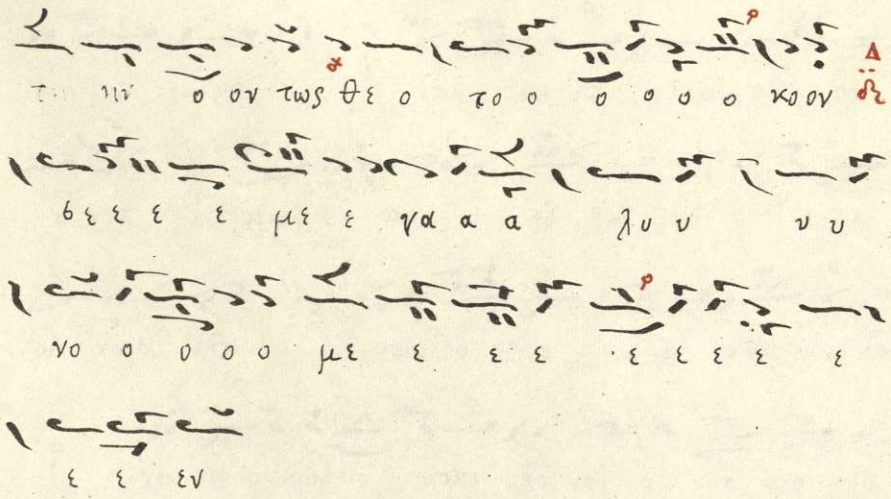 τ ην ο ον τως θε ο το ο ο ο ο ο κο ον Δ
σε ε ε ε με ε γα α α λυ υ υ υ
νο ο ο ο ο με ε ε ε ε ε ε ε ε
ε ε εν